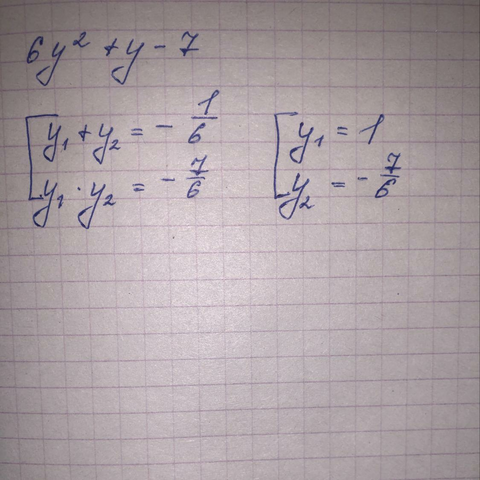 6y² + y - 7
y₁ + y₂ = - 1/6
y₁ · y₂ = - 7/6
y₁ = 1
y₂ = - 7/6